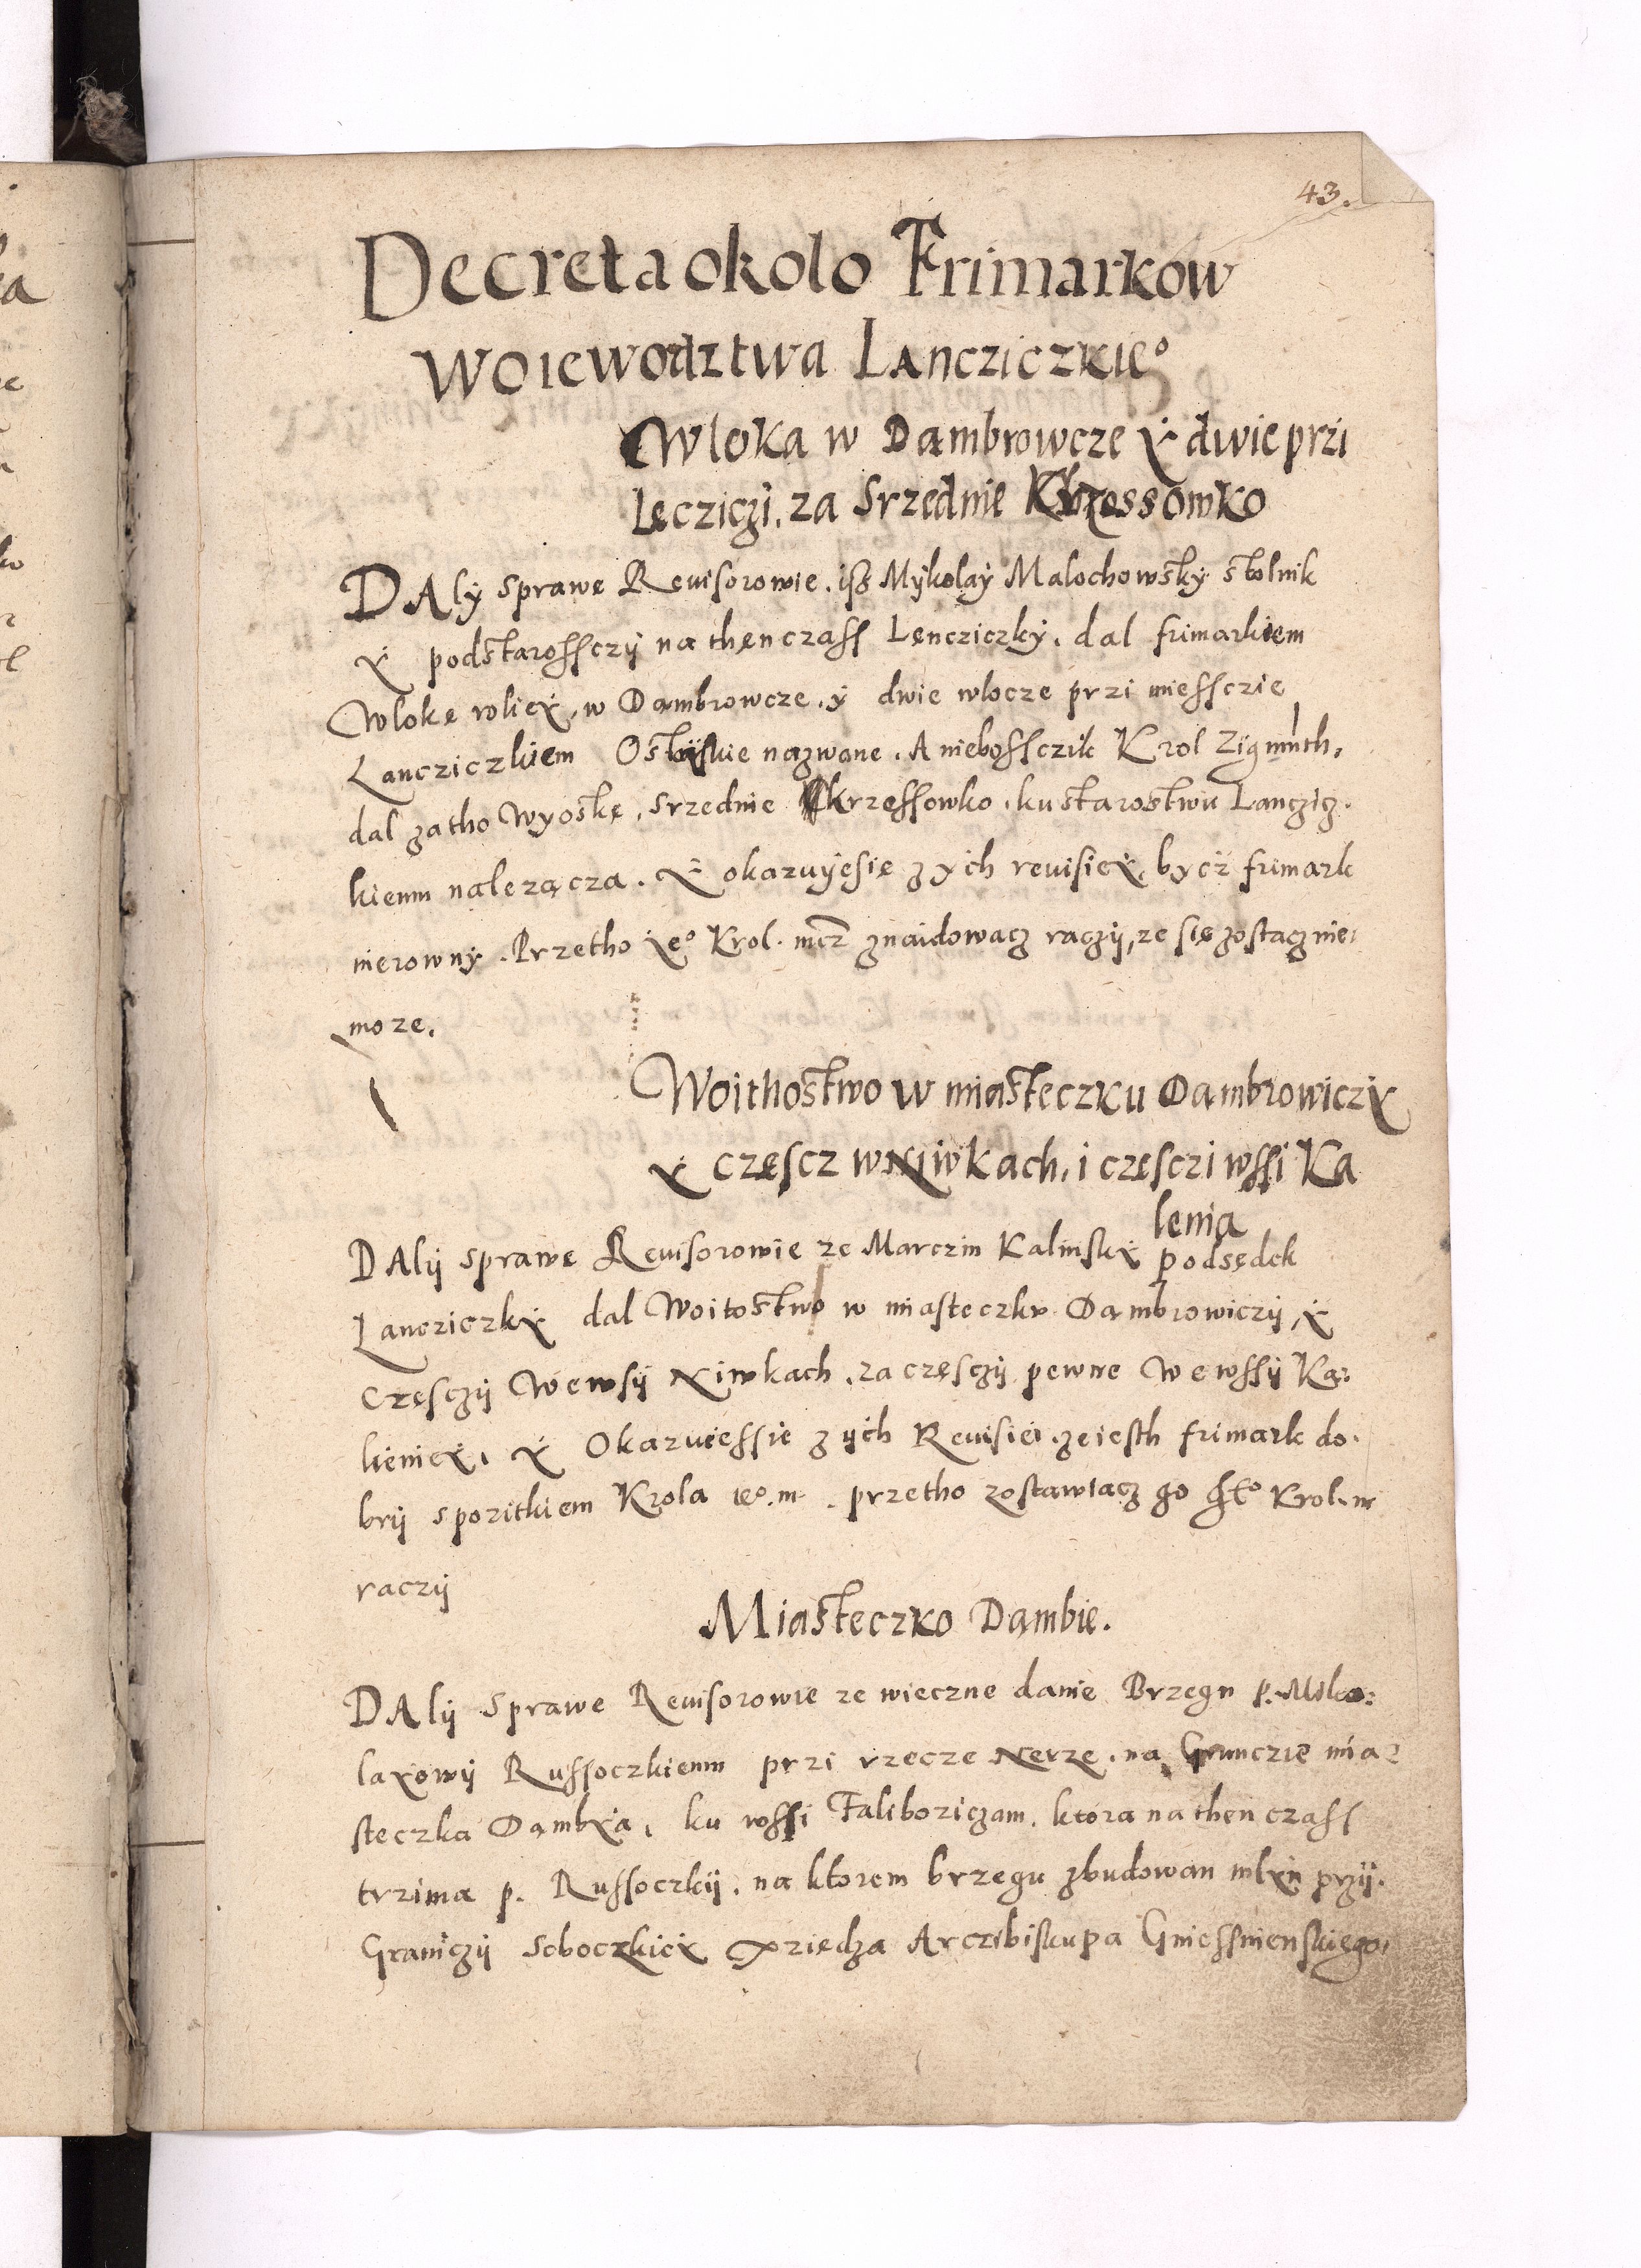 43.
Decreta okolo Frimarkow
Woiewodztwa Lancziczkie°
Wloka w Dambrowcze ẏ dwie przi
Lęcziczi, za Srzednie Krzessowko
DAlÿ sprawę Reuisorowie, isz Mÿkolaÿ Malochowskÿ stolnik
ẏ podstarossczÿ na then czass Lencziczkÿ, dal frimarkiem
Wlokę roliеÿ, w Dambrowcze, ÿ dwie wlocze przi miessczie
Lancziczkiem nazwane. A niebossczik Krol Zigmunth,
dal za tho Wyoskę, srzednie krzessowko, ku starostwu Lanczicz.
kiemu nalezącza. ẏ okazuÿesię z ÿch reuisieÿ, bycz frimark
nierownÿ. Przetho ÿe° Krol. mcz znaidowacz raczÿ, ze się zostacz nie
moze.
Woithostwo w miasteczku Dambrowiczÿ
ẏ częscz w Niwkach, i częsczi wssi Ka
lenia
DAlÿ sprawę Reuisorowie ze Marczin Kalinskÿ Podsędek
Lancziczkÿ dal Woitostwo w miasteczku Dambrowiczÿ, ẏ
Częsczÿ We wsÿ Niwkach, za częsczÿ pewne We wssÿ Ka:
lieniеÿ, ẏ Okazuiessie z ÿch Reuisiei ze iesth frimark do.
brÿ s pozitkiem Krola ie°. m. przetho zostawiacz go Krol. m
raczÿ
Miasteczko Dambie.
DAlÿ sprawę Reuisorowie ze wieczne danie Brzegu p. Miko:
laÿowÿ Russoczkiemu przi rzecze Nerze, na Grunczie mia
steczka Dambÿa, ku wssi Faliboziczam, ktora na then czass
trzima p. Russoczkÿ, na ktorem brzegu zbudowan mlÿn przÿ.
Graniczÿ Soboczkieÿ Xziędza Arczibiskupa Gniessnienskiego,